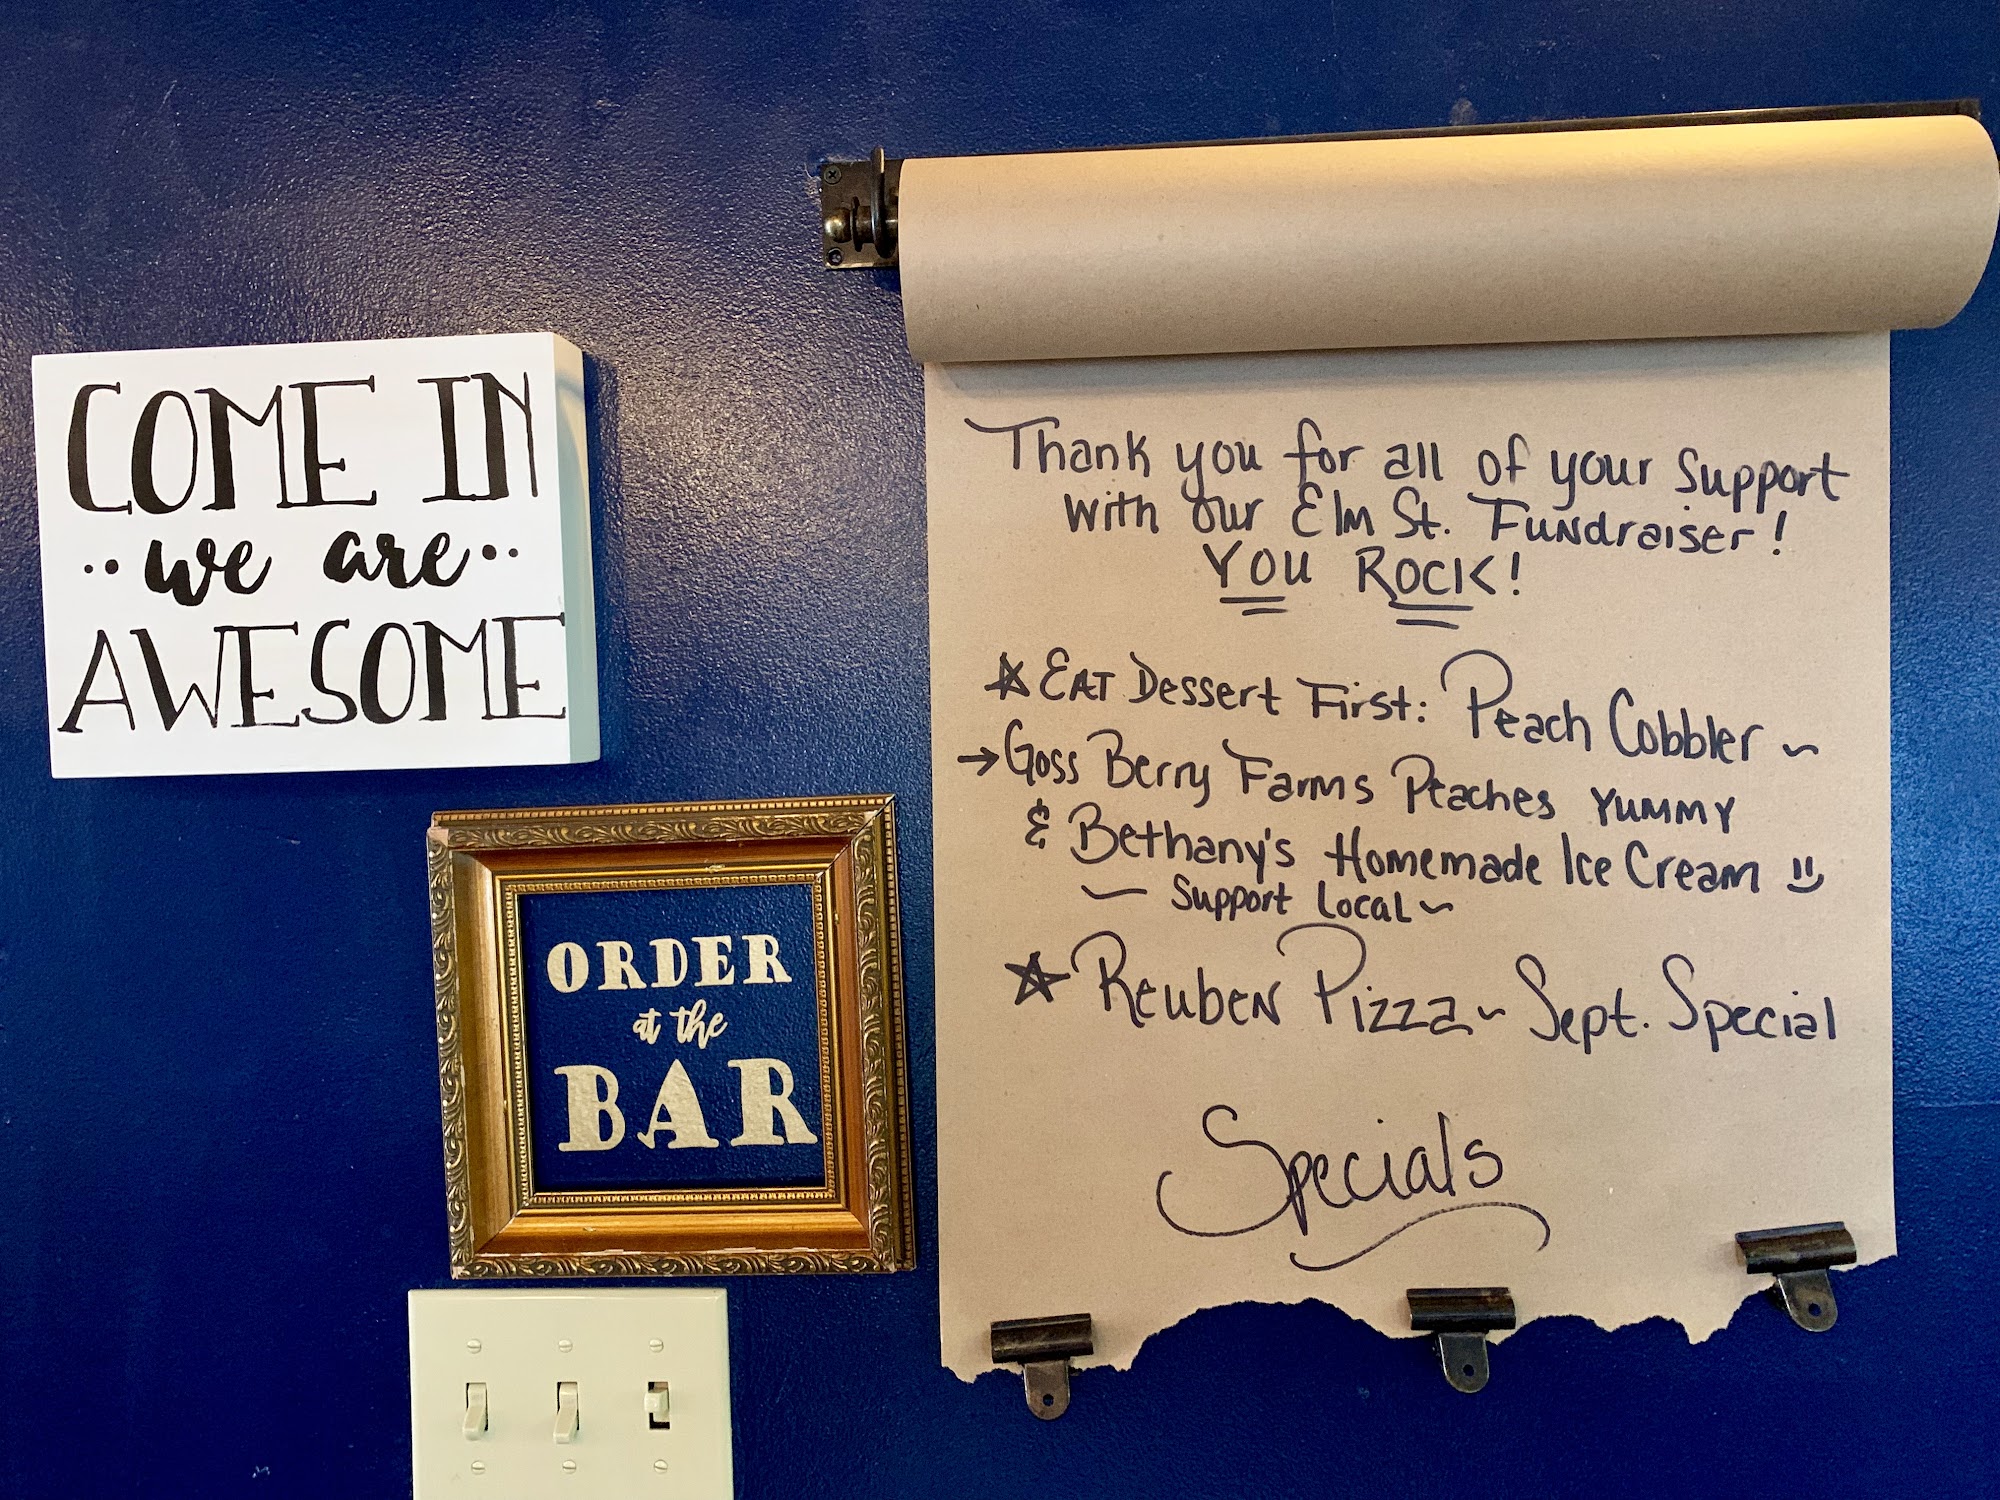 COME IN
we are
AWESOME
ORDER
at the
BAR
Thank you for all of your support
with our Elm St. Fundraiser!
YOU ROCK!
EAT Dessert First: Peach Cobbler ~
→ Goss Berry Farms Peaches YUMMY
& Bethany's Homemade Ice Cream
~ Support Local ~
Reuben Pizza ~ Sept. Special
Specials